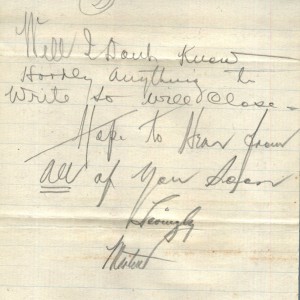 Well I Dont Know
Hardly Anything to
Write so will Close -
Hope to Hear from
All of You Soon
Lovingly